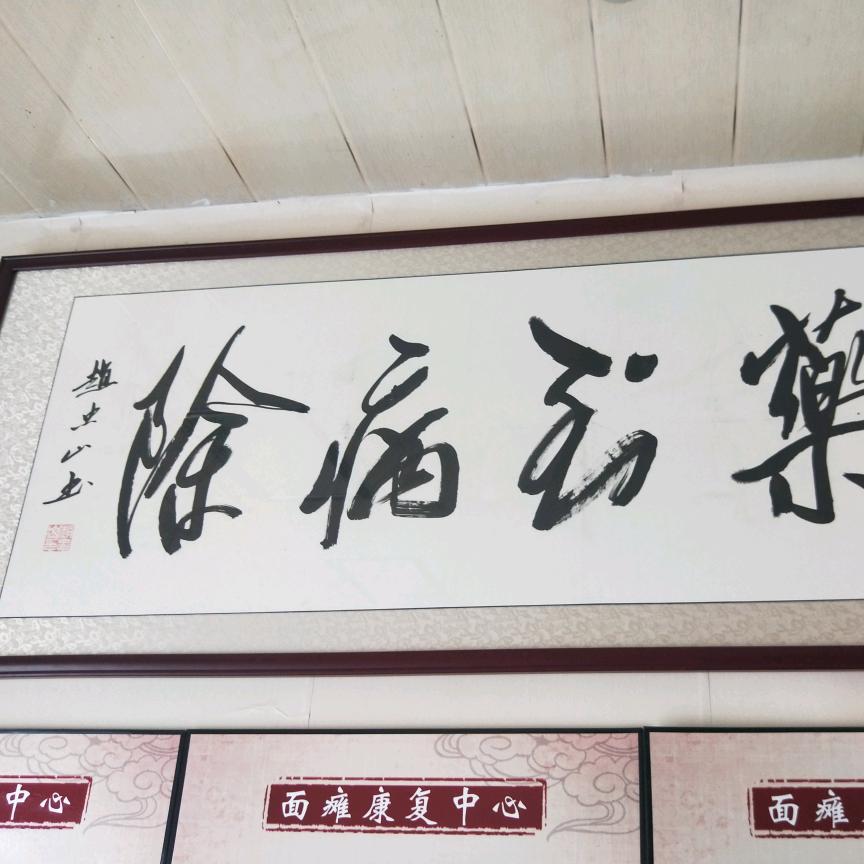 藥到病除
趙忠山书
中心
面瘫康复中心
面瘫